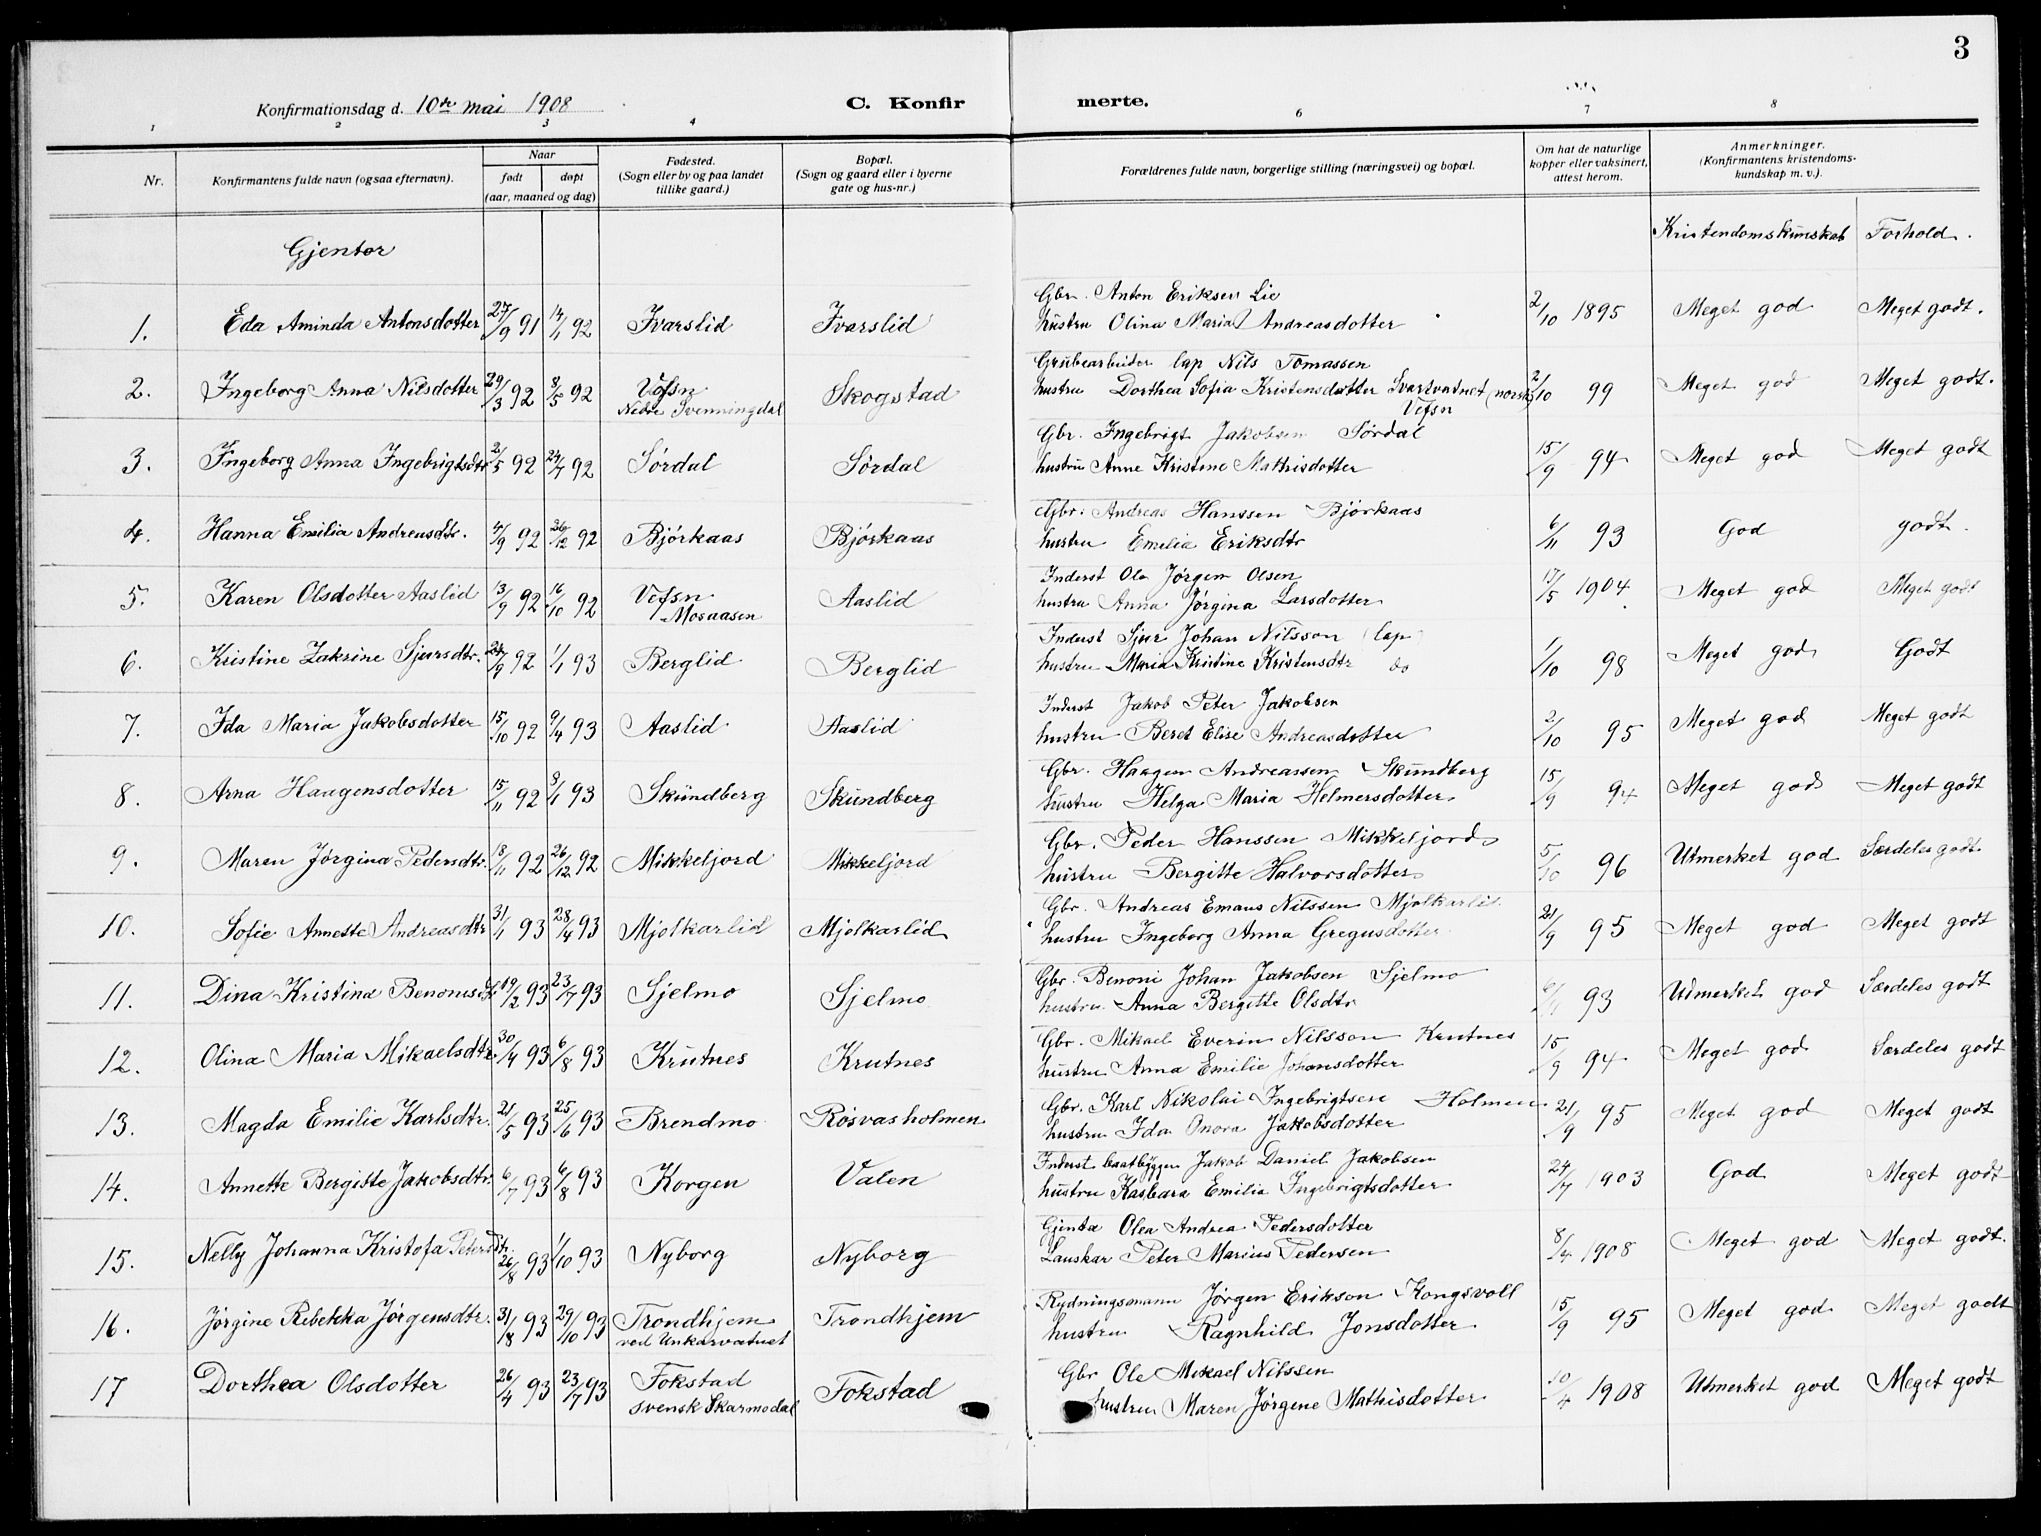 3
Konfirmationsdag d. 10de mai 1908
C. Konfir merte.
1 2 3 4 6 7 8
Nr. Konfirmantens fulde navn (ogsaa efternavn). Naar født døpt (aar, maaned og dag) Fødested. (Sogn eller by og paa landet tillike gaard.) Bopæl. (Sogn og gaard eller i byerne gate og hus-nr.) Forældrenes fulde navn, borgerlige stilling (næringsvei) og bopæl. Om hat de naturlige kopper eller vaksinert, attest herom. Anmerkninger. (Konfirmantens kristendoms-kundskap m. v.).
Gjentor Kristendomskunskab Forhold.
Gbr. Anton Eriksen Lie
1. Eda Aminda Antonsdotter 27/9 91 14/1 92 Ivarslid Ivarslid hustru Olina Maria Andreasdotter 2/10 1895 Meget god Meget godt.
Grubearbeider lap Nils Tomassen
2. Ingeborg Anna Nilsdotter 29/3 92 8/5 92 Vefsn Nedre Svenningdal Skogstad hustru Dorthea Sofia Kristensdotter Svartvatnet (norsk) Vefsn 2/10 99 Meget god Meget godt.
Gbr. Ingebrigt Jakobsen Sørdal
3. Ingeborg Anna Ingebrigtsdtr 2/5 92 24/7 92 Sørdal Sørdal hustru Anne Kristene Mathisdotter 15/9 94 Meget god Meget godt
Gbr. Andreas Hanssen Bjørkaas
4. Hanna Emilia Andreasdtr. 4/9 92 26/12 92 Bjørkaas Bjørkaas hustru Emelia Eriksdtr 6/11 93 God godt.
Inderst Ole Jørgen Olsen
5. Karen Olsdotter Aaslid 13/9 92 16/10 92 Vefsn Mosaasen Aaslid hustru Anna Jørgina Larsdotter 17/5 1904 Meget god Meget godt
Inderst Sjur Johan Nilsson lap
6. Kristine Zakrine Sjursdtr. 92 1/1 93 Berglid Berglid hustru Maria Kristine Kristensdtr do 1/10 98 Meget god Godt
Inderst Jakob Peter Jakobsen
7. Ida Maria Jakobsdotter 15/10 92 9/4 93 Aaslid Aaslid hustru Beret Elise Andreasdotter 2/10 95 Meget god Meget godt
Gbr. Haagen Andreassen Skundberg
8. Arna Haagensdotter 15/11 92 8/1 93 Skundberg Skundberg hustru Helga Maria Helmersdotter 15/9 94 Meget god Meget godt
Gbr. Peder Hanssen Mikkeljord
9. Maren Jørgina Pedersdtr. 18/11 92 26/12 92 Mikkeljord Mikkeljord hustru Bergitte Halvorsdotter 5/10 96 Utmerket god Særdeles godt
Gbr. Andreas Emaus Nilssen Mjolkarlid
10. Sofie Annette Andreasdtr 31/1 93 28/4 93 Mjolkarlid Mjolkarlid hustru Ingeborg Anna Gregusdotter 21/9 95 Meget god Meget godt
Gbr. Benoni Johan Jakobsen Sjelmo
11. Dina Kristina Benonisdtr 19/2 93 23/7 93 Sjelmo Sjelmo hustru Anna Bergitte Olsdtr 93 Utmerket god Særdeles godt
Gbr. Mikael Everin Nilsson Krutnes
12. Olina Maria Mikaelsdtr. 30/4 93 6/8 93 Krutnes Krutnes hustru Anna Emilie Johansdotter 15/9 94 Meget god Særdeles godt
Gbr. Karl Nikolai Ingebrigtsen Holmen
13. Magda Emilie Karlsdtr. 21/5 93 25/6 93 Brendmo Røsvasholmen hustru Ida Onora Jakobsdotter 21/9 95 Meget god Meget godt
Inderst baatbygger Jakob Daniel Jakobsen
14. Annette Bergitte Jakobsdtr. 6/7 93 6/8 93 Korgen Valen hustru Kasbara Emilia Ingebrigtsdotter 24/7 1903 God Meget godt
Gjenta Olea Andrea Pedersdotter
15. Nelly Johanna Kristofa Petersdtr. 26/8 93 1/10 93 Nyborg Nyborg Lauskar Peter Marius Pedersen 8/4 1908 Meget god Meget godt.
Rydningsmann Jørgen Erikson Kongsvoll
16. Jørgine Rebekka Jørgensdtr. 31/8 93 29/10 93 Trondhjem ved Unkarvatnet Trondhjem hustru Ragnhild Jonsdotter 15/9 95 Meget god Meget godt
Gbr Ole Mikael Nilssen
17 Dorthea Olsdotter 26/4 93 23/7 93 Fokstad svensk Skarmodal Fokstad hustru Maren Jørgene Mathisdotter 10/4 1908 Utmerket god Meget godt